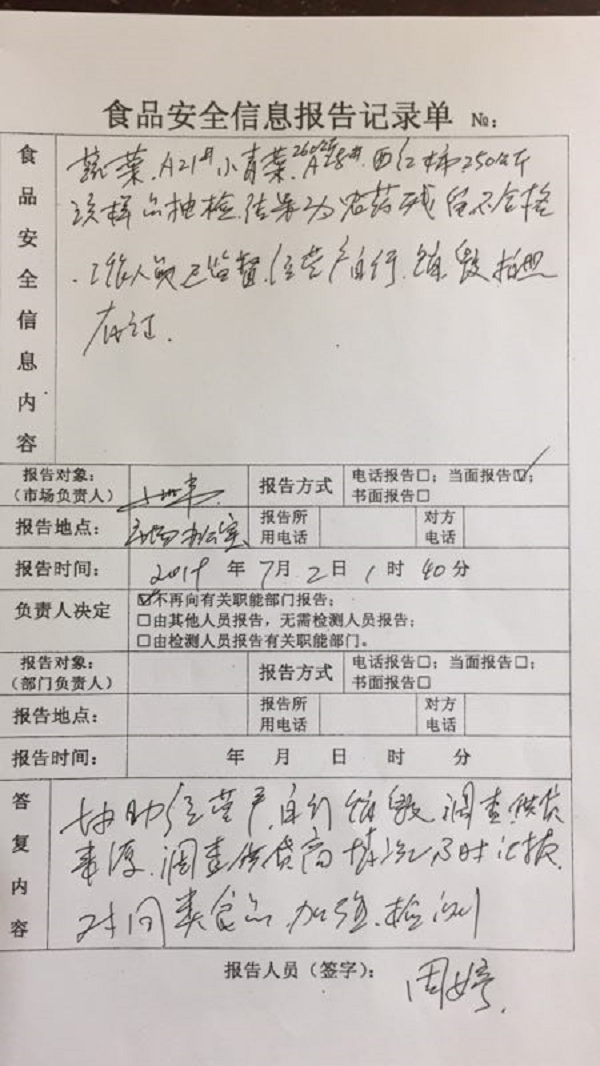 食品安全信息报告记录单 №:
食品安全信息内容
蔬菜.A21#小青菜.260公斤A28#.西红柿250公斤
该样品抽检.结果为农药残留不合格
.工作人员已监督.经营户自行.销毁.拍照
存证.
报告对象:
(市场负责人)
报告方式
电话报告□; 当面报告☑;
书面报告□
报告地点: 市场办公室
报告所
用电话
对方
电话
报告时间: 2019 年 7月 2日 1 时 40分
负责人决定
☑不再向有关职能部门报告;
□由其他人员报告,无需检测人员报告;
□由检测人员报告有关职能部门。
报告对象:
(部门负责人)
报告方式
电话报告□; 当面报告□;
书面报告□
报告地点:
报告所
用电话
对方
电话
报告时间: 年 月 日 时 分
答复内容
协助经营户.自行销毁.调查供货
来源.调查供货商情况及时汇报.
对同类食品加强.检测
报告人员(签字): 周婷.